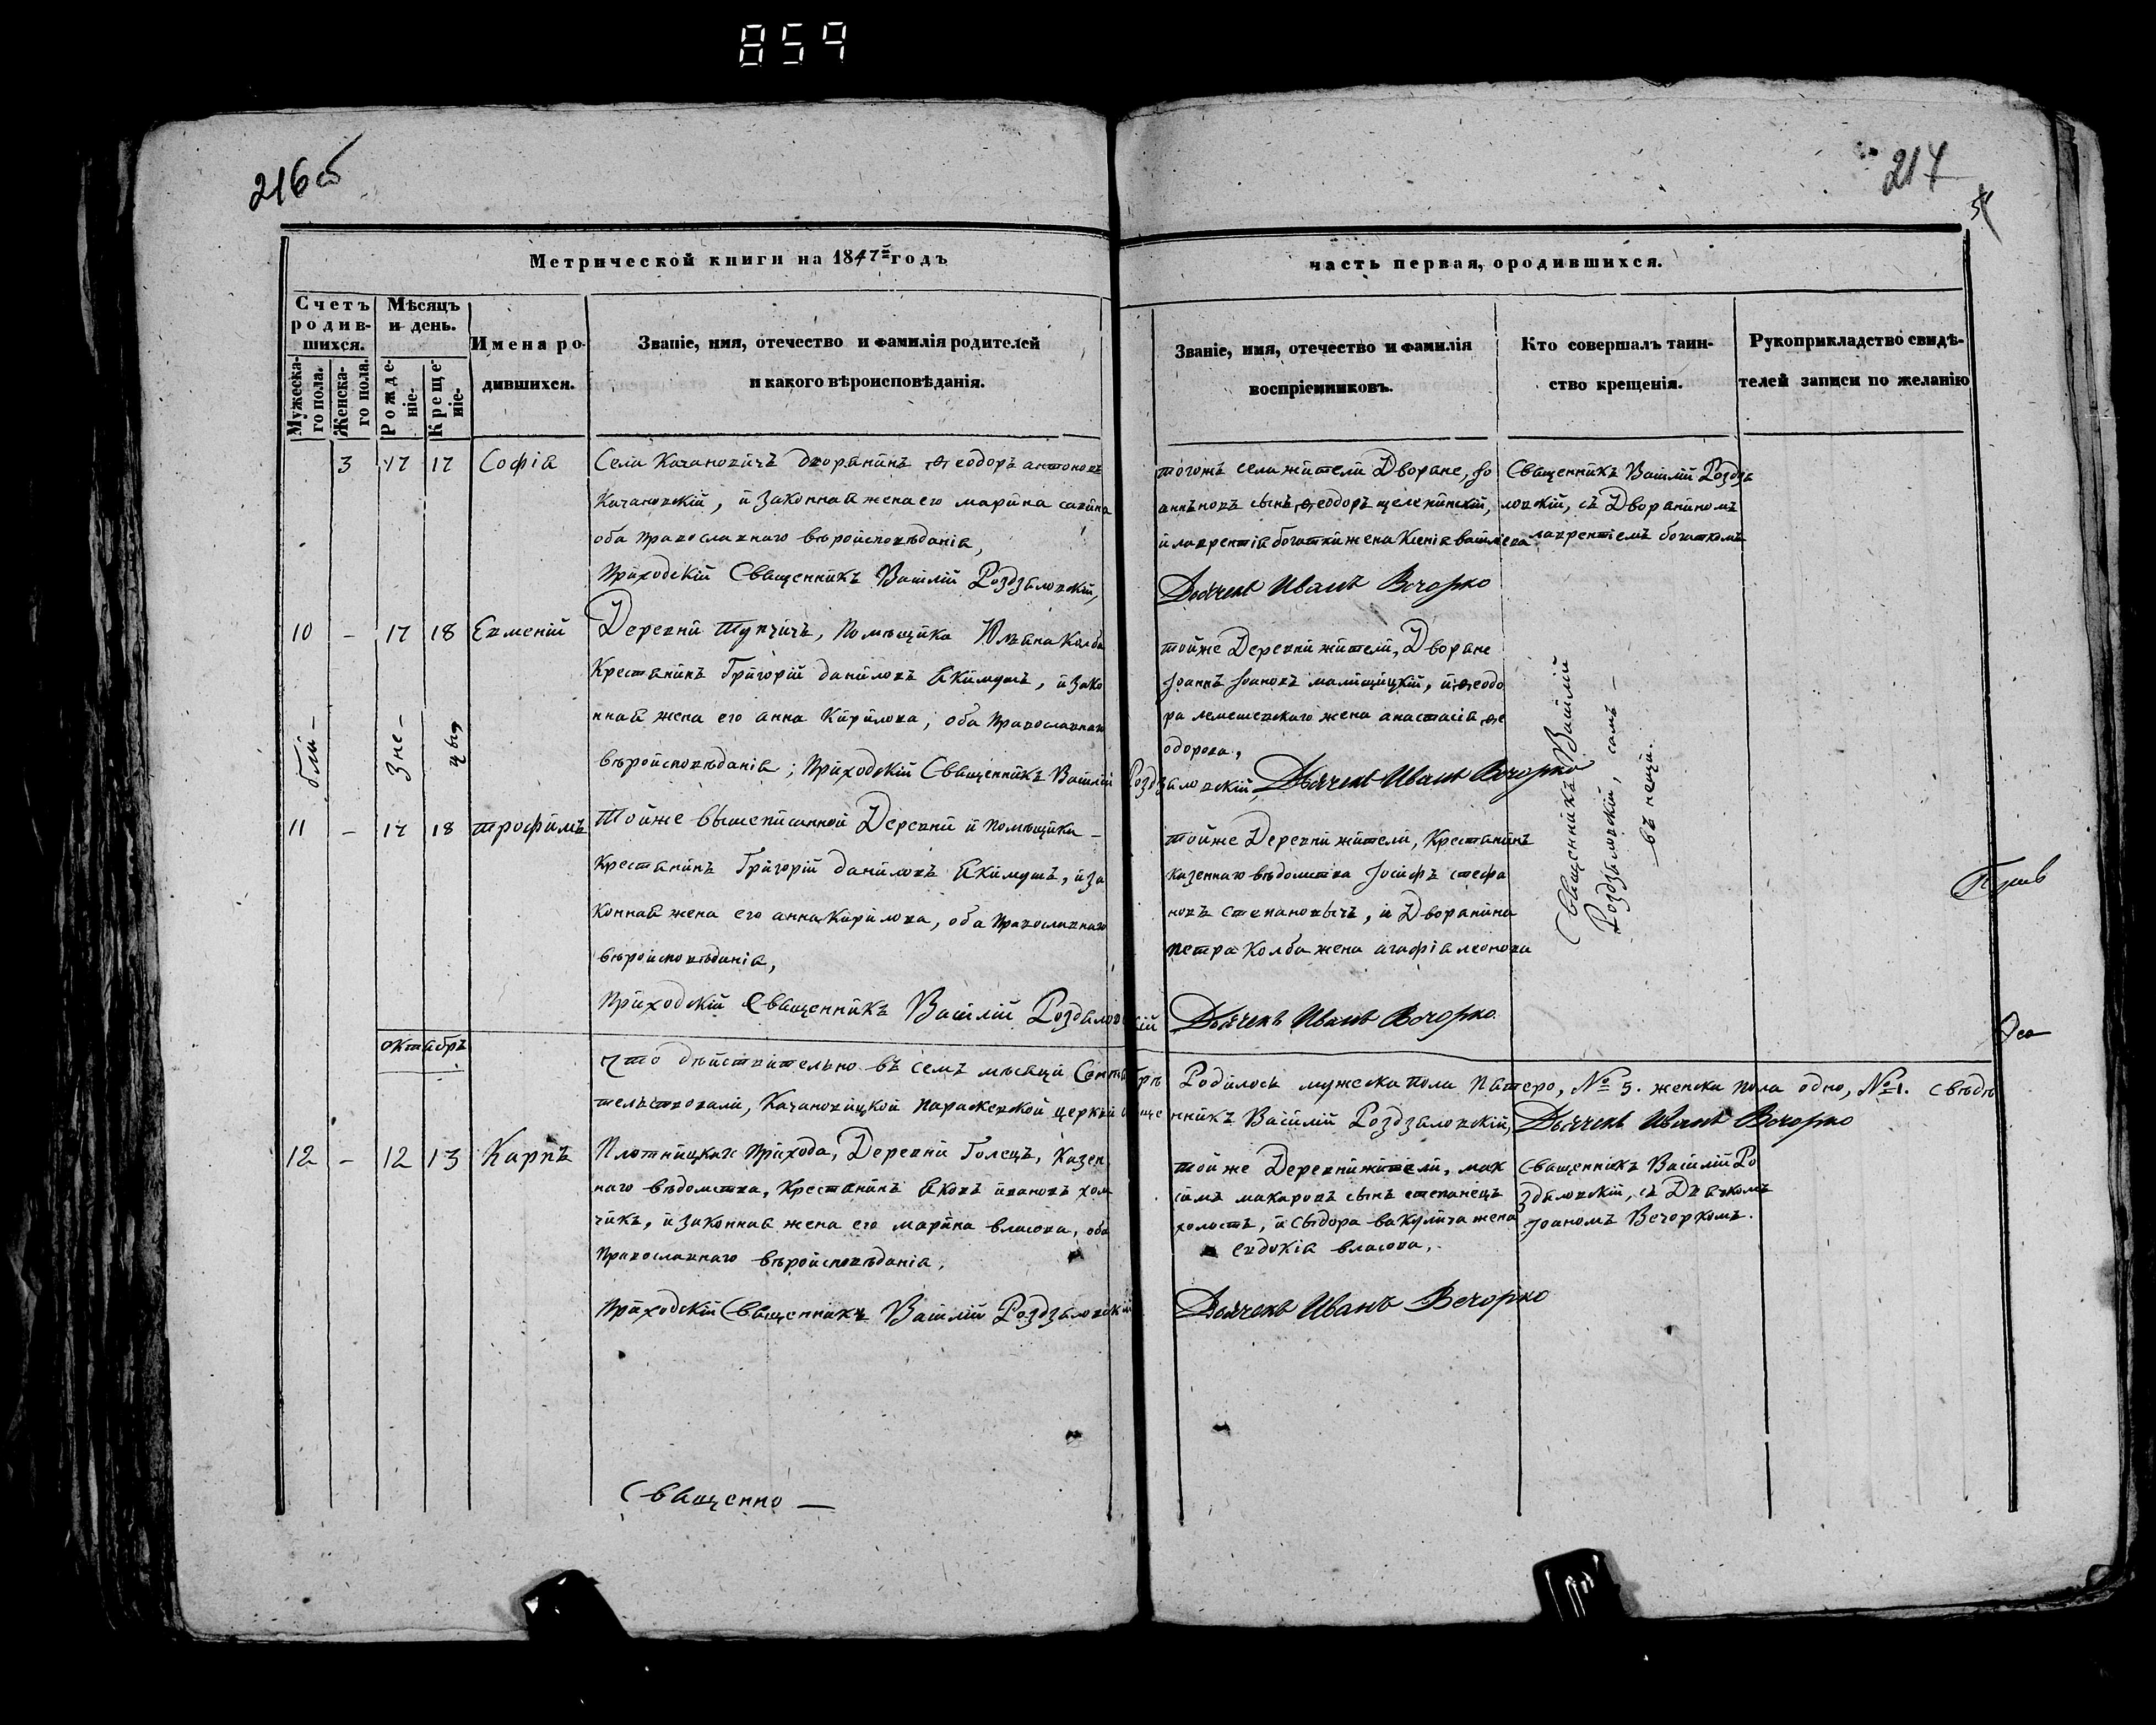 859
216об
217
Метрической книги на 1847й годъ
часть первая, ородившихся.
Счетъ родив-шихся.
Мужеска-го пола.
Женска-го пола.
Мѣсяцъ и день.
Рожде-ніе.
Креще-ніе.
Имена ро-дившихся.
Званіе, имя, отечество и фамилія родителей
и какого вѣроисповѣданія.
Званіе, имя, отечество и фамилія
воспріемниковъ.
Кто совершалъ таин-
ство крещенія.
Рукоприкладство свидѣ-
телей записи по желанію
3 17 17 Софія
Села Качановичъ дворянинъ Ѳеодоръ антоновъ
Качановскій, и законная жена его марина савина
оба православнаго вѣроисповѣданія,
Приходскій Священникъ Василій Роздзяловскій,
тогожъ села жители Дворяне, Jо
анновъ сынъ Ѳеодоръ щепинскій,
и лаврентія богатки жена Ксенія васильева
Дьячекъ Иванъ Вечорко
Священникъ Василій Роздзя
ловскій, съ Дворяниномъ
лаврентіемъ богаткомъ
10 - 17 18 Евменій
Деревни Тупчичъ, Помѣщика Юльяна Колба
Крестьянинъ Григорій даниловъ Якимушъ, и зако
нная жена его анна Кирилова, оба православнаго
вѣроисповѣданія; Приходскій Священникъ Василій Роздзяловскій,
тойже Деревни жители, Дворяне
Jоаннъ Jоановъ малищицкій, и Ѳеодо
ра лемешевскаго жена анастасія Ѳе
одорова,
Дьячекъ Иванъ Вечорко
бли-
зне-
цы
Священникъ Василій
Роздзяловскій, самъ -
въ пещи.
11 - 17 18 трофимъ
Тойже вышеписанной Деревни и помѣщика -
Крестьянинъ Григорій даниловъ Якимушъ, и за
конная жена его анна Кирилова, оба православнаго
вѣроисповѣданія,
Приходскій Священникъ Василій Роздяловскій
тойже Деревни жители, Крестьянинъ
казеннаго вѣдомства Jосифъ стефа
новъ степановычъ, и Дворянина
петра Колба жена агафія леонова
Дьячекъ Иванъ Вечорко
октябрь
Что дѣйствительно въ семъ мѣсяци Сентябрѣ Родилось мужеска пола пятеро, № 5. женска пола одно, № 1. свѣдѣ
тельствовали, Качановицкой параскевской церкви священникъ Василій Роздзяловскій, Дьячекъ Иванъ Вечорко
12 - 12 13 Карпъ
Плотницкаго прихода, Деревни Голецъ, Казен
наго вѣдомства, Крестьянинъ Яковъ ивановъ хом
чикъ, и законная жена его марина власова, оба
Православнаго вѣроисповѣданія,
Приходскій Священникъ Василій Роздзяловскій
тойже Деревни жители, мак
симъ макаровъ сынъ степанецъ
холостъ, и сыдора вакулича жена
евдокія власова,
Дьячекъ Иванъ Вечорко
Священникъ Василій Ро
здяловскій, съ Дьячкомъ
Jоаномъ Вечоркомъ.
Священно —